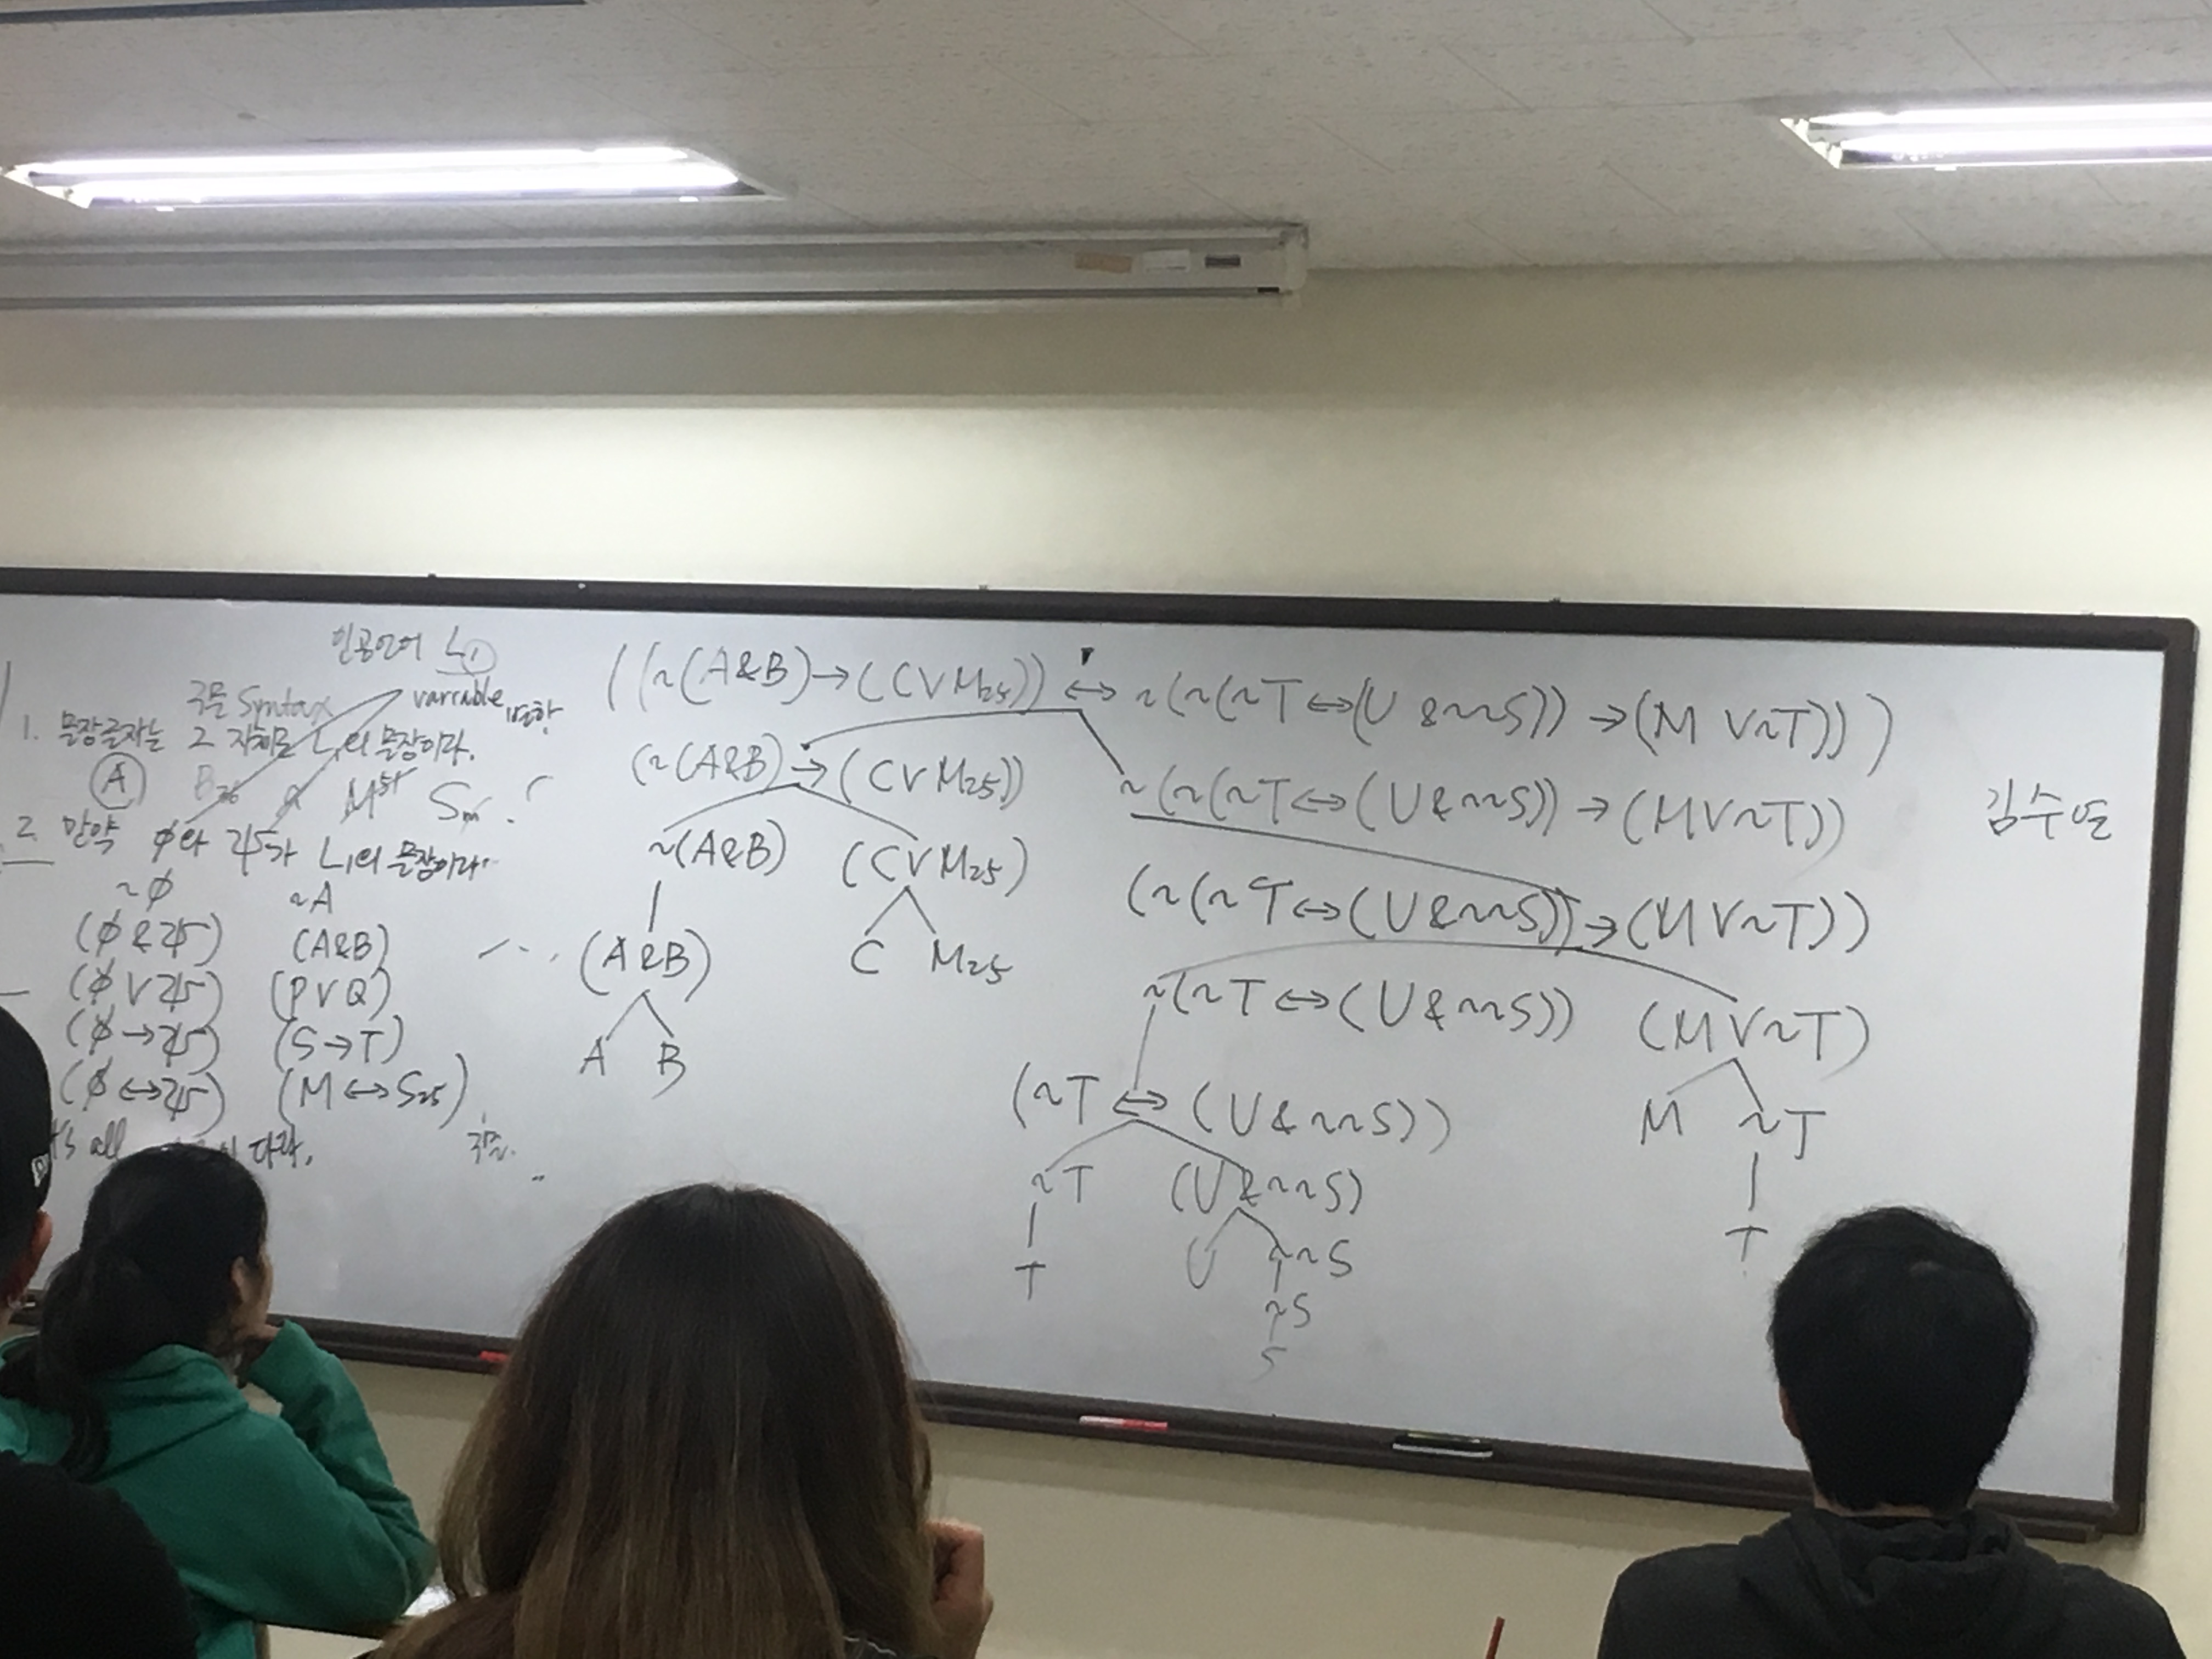 인공언어 L₁
구문 Syntax
variable
1. 문장글자는 그 자체로 L₁의 문장이다.
A B₂₆ α M⁵¹ Sₘ
2. 만약 ϕ와 ψ가 L₁의 문장이라
~ϕ ~A
(ϕ & ψ) (A&B)
(ϕ ∨ ψ) (P∨Q)
(ϕ → ψ) (S→T)
(ϕ ↔ ψ) (M↔S₂₅)
's all 다라.
((~(A&B)→(C∨M₂₅)) ↔ ~(~(~T↔(U&~~S))→(M∨~T)))
(~(A&B)→(C∨M₂₅))
~(A&B) (C∨M₂₅)
(A&B) C M₂₅
A B
~(~(~T↔(U&~~S))→(M∨~T))
(~(~T↔(U&~~S))→(M∨~T))
~(~T↔(U&~~S)) (M∨~T)
(~T↔(U&~~S)) M ~T
~T (U&~~S) T
T U ~~S
~S
S